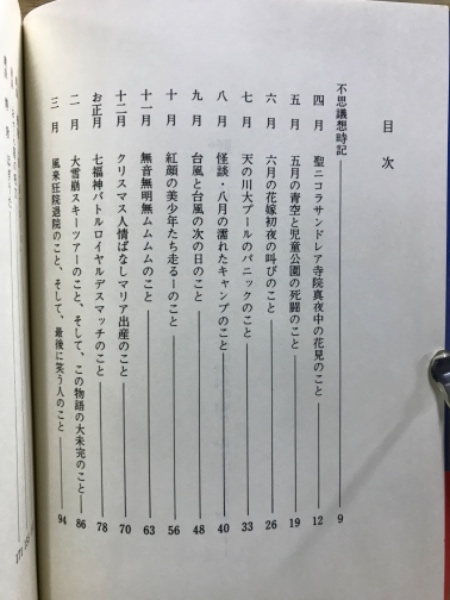 目次
不思議想時記 9
四月 聖ニコラサンドレア寺院真夜中の花見のこと 12
五月 五月の青空と児童公園の死闘のこと 19
六月 六月の花嫁初夜の叫びのこと 26
七月 天の川大プールのパニックのこと 33
八月 怪談・八月の濡れたキャンプのこと 40
九月 台風と台風の次の日のこと 48
十月 紅顔の美少年たち走るーのこと 56
十一月 無音無明無ムムムのこと 63
十二月 クリスマス人情ばなしマリア出産のこと 70
お正月 七福神バトルロイヤルデスマッチのこと 78
二月 大雪崩スキーツアーのこと、そして、この物語の大未完のこと 86
三月 風来狂院退院のこと、そして、最後に笑う人のこと 94